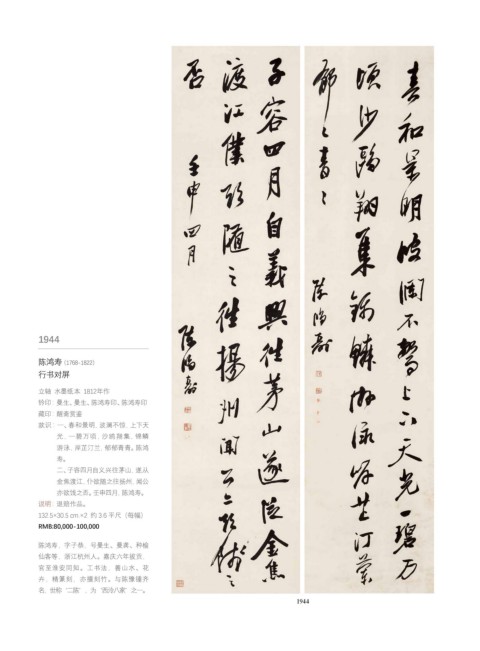 春和景明波澜不惊上下天光一碧万
顷沙鸥翔集锦鳞游泳岸芷汀兰
郁々青々
陈鸿寿
子容四月自義興往茅山遂從金焦
渡江僕欲隨之往揚州闻公亦欲饯之
否
壬申四月
陈鸿寿
1944
陈鸿寿(1768-1822)
行书对屏
立轴 水墨纸本 1812年作
钤印:曼生、曼生、陈鸿寿印、陈鸿寿印
款识:一、春和景明,波澜不惊,上下天
光,一碧万顷,沙鸥翔集,锦鳞
游泳,岸芷汀兰,郁郁青青。陈鸿
寿。
二、子容四月自义兴往茅山,遂从
金焦渡江,仆欲随之往扬州,闻公
亦欲饯之否。壬申四月,陈鸿寿。
说明:
132.5×30.5 cm.×2 约3.6平尺(每幅)
RMB:80,000-100,000
陈鸿寿,字子恭,号曼生、曼龚、种榆
仙客等,浙江杭州人。嘉庆六年拔贡,
官至淮安同知。工书法,善山水、花
卉,精篆刻,亦擅刻竹。与陈豫锺齐
名,世称“二陈”,为“西泠八家”之一。
1944